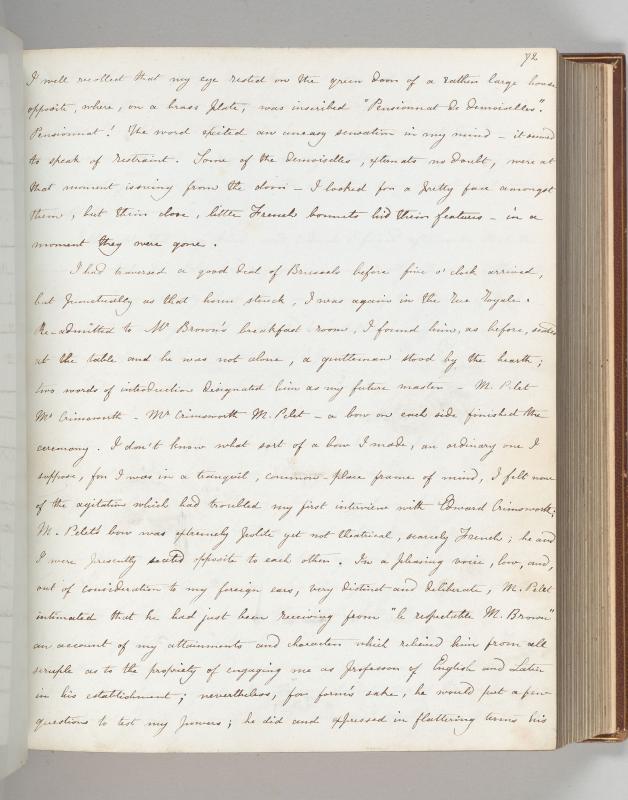 72
I well recollect that my eye rested on the green door of a rather large house
opposite, where, on a brass plate, was inscribed "Pensionnat de demoiselles".
Pensionnat! The word excited an uneasy sensation in my mind - it seemed
to speak of restraint. Some of the demoiselles, externats no doubt, were at
that moment issuing from the door - I looked for a pretty face amongst
them, but their close, little French bonnets hid their features - in a
moment they were gone.
I had traversed a good deal of Brussels before five o'clock arrived,
but punctually as that hour struck, I was again in the Rue Royale.
Re-admitted to Mr Brown's breakfast room, I found him, as before, seated
at the table and he was not alone, a gentleman stood by the hearth;
two words of introduction designated him as my future master - M. Pelet
Mr Crimsworth - Mr Crimsworth M. Pelet - a bow on each side finished the
ceremony. I don't know what sort of a bow I made, an ordinary one I
suppose, for I was in a tranquil, common-place frame of mind, I felt none
of the agitation which had troubled my first interview with Edward Crimsworth;
M. Pelet's bow was extremely polite yet not theatrical, scarcely French; he and
I were presently seated opposite to each other. In a pleasing voice, low, and,
out of consideration to my foreign ears, very distinct and deliberate, M. Pelet
intimated that he had just been receiving from "le respectable M. Brown"
an account of my attainments and character which relieved him from all
scruple as to the propriety of engaging me as professor of English and Latin
in his establishment; nevertheless, for form's sake, he would put a few
questions to test my powers; he did and expressed in flattering terms his